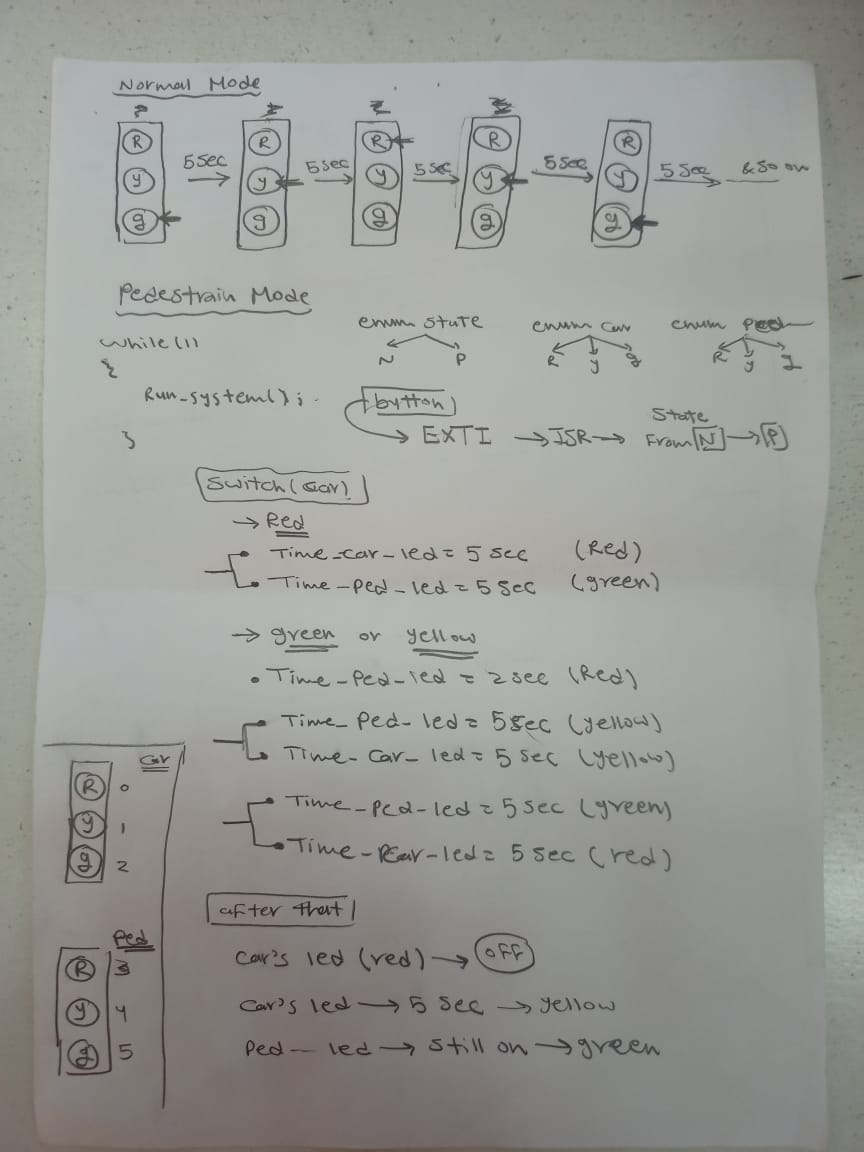 Normal Mode
R R R R R
y y y y y
g g g g g
5 sec 5 sec 5 sec 5 sec 5 sec & so on
Pedestrain Mode
enum state enum car enum ped
while(1) N P R y g R y g
{
Run_system(); button
→ EXTI → ISR → State From [N] → [P]
}
Switch(car)
→ Red
• Time_car_led = 5 sec (Red)
• Time_ped_led = 5 sec (green)
→ green or yellow
• Time_Ped_led = 2 sec (Red)
• Time_Ped_led = 5 sec (yellow)
• Time_Car_led = 5 sec (yellow)
• Time_Ped_led = 5 sec (green)
• Time_Car_led = 5 sec (red)
after that
Car's led (red) → OFF
Car's led → 5 sec → yellow
Ped_led → still on → green
Car
R 0
y 1
g 2
Ped
R 3
y 4
g 5